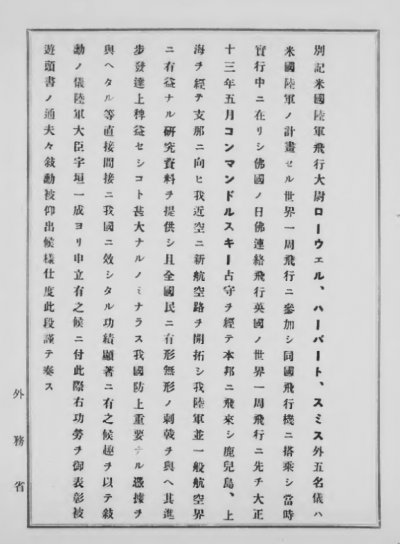 別記米國陸軍飛行大尉ローウェル、ハーバート、スミス外五名儀ハ
米國陸軍ノ計畫セル世界一周飛行ニ參加シ同國飛行機ニ搭乘シ當時
實行中ニ在リシ佛國ノ日佛連絡飛行英國ノ世界一周飛行ニ先チ大正
十三年五月コンマンドルスキー占守ヲ經テ本邦ニ飛來シ鹿兒島、上
海ヲ經テ支那ニ向ヒ我近空ニ新航空路ヲ開拓シ我陸軍並一般航空界
ニ有益ナル硏究資料ヲ提供シ且全國民ニ有形無形ノ刺戟ヲ與ヘ其進
步發達上稗益セシコト甚大ナルノミナラス我國防上重要ナル憑據ヲ
與ヘタル等直接間接ニ我國ニ效シタル功績顯著ニ有之候趣ヲ以テ敍
勳ノ儀陸軍大臣宇垣一成ヨリ申立有之候ニ付此際右功勞ヲ御表彰被
遊頭書ノ通夫々敍勳被仰出候樣仕度此段謹テ奏ス
外務省